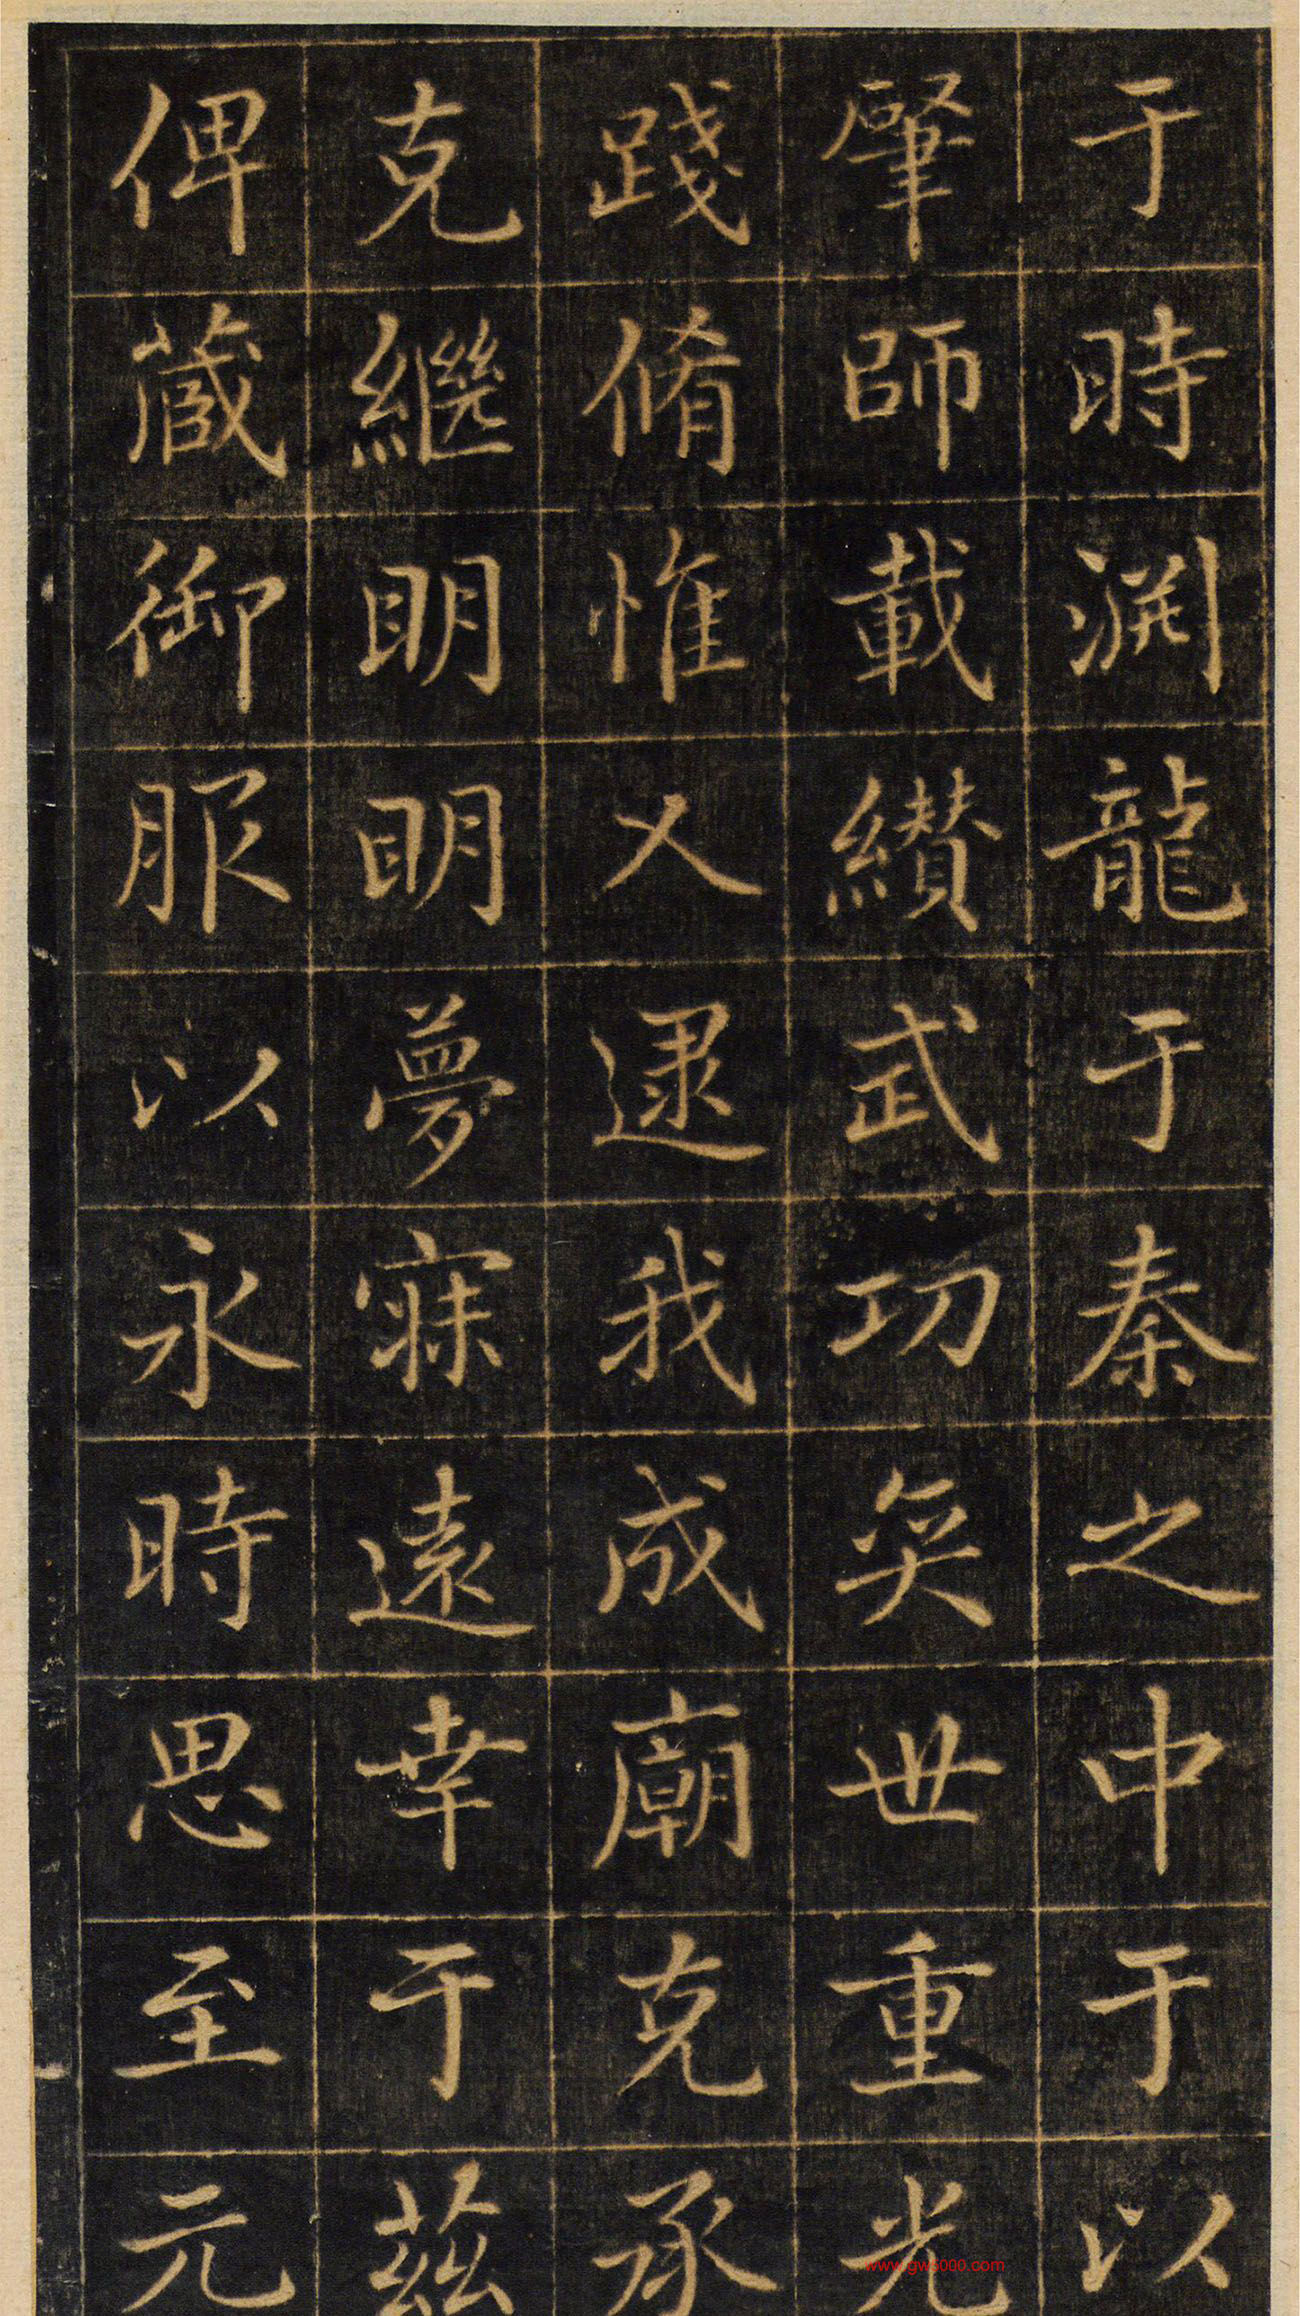 于時渊龍于秦之中于以
肇師載纘武功奕世重光
踐脩惟人逮我成廟克承
克繼明明夢寐遠幸于茲
俾蕆御服以永時思至元
www.gw5000.com